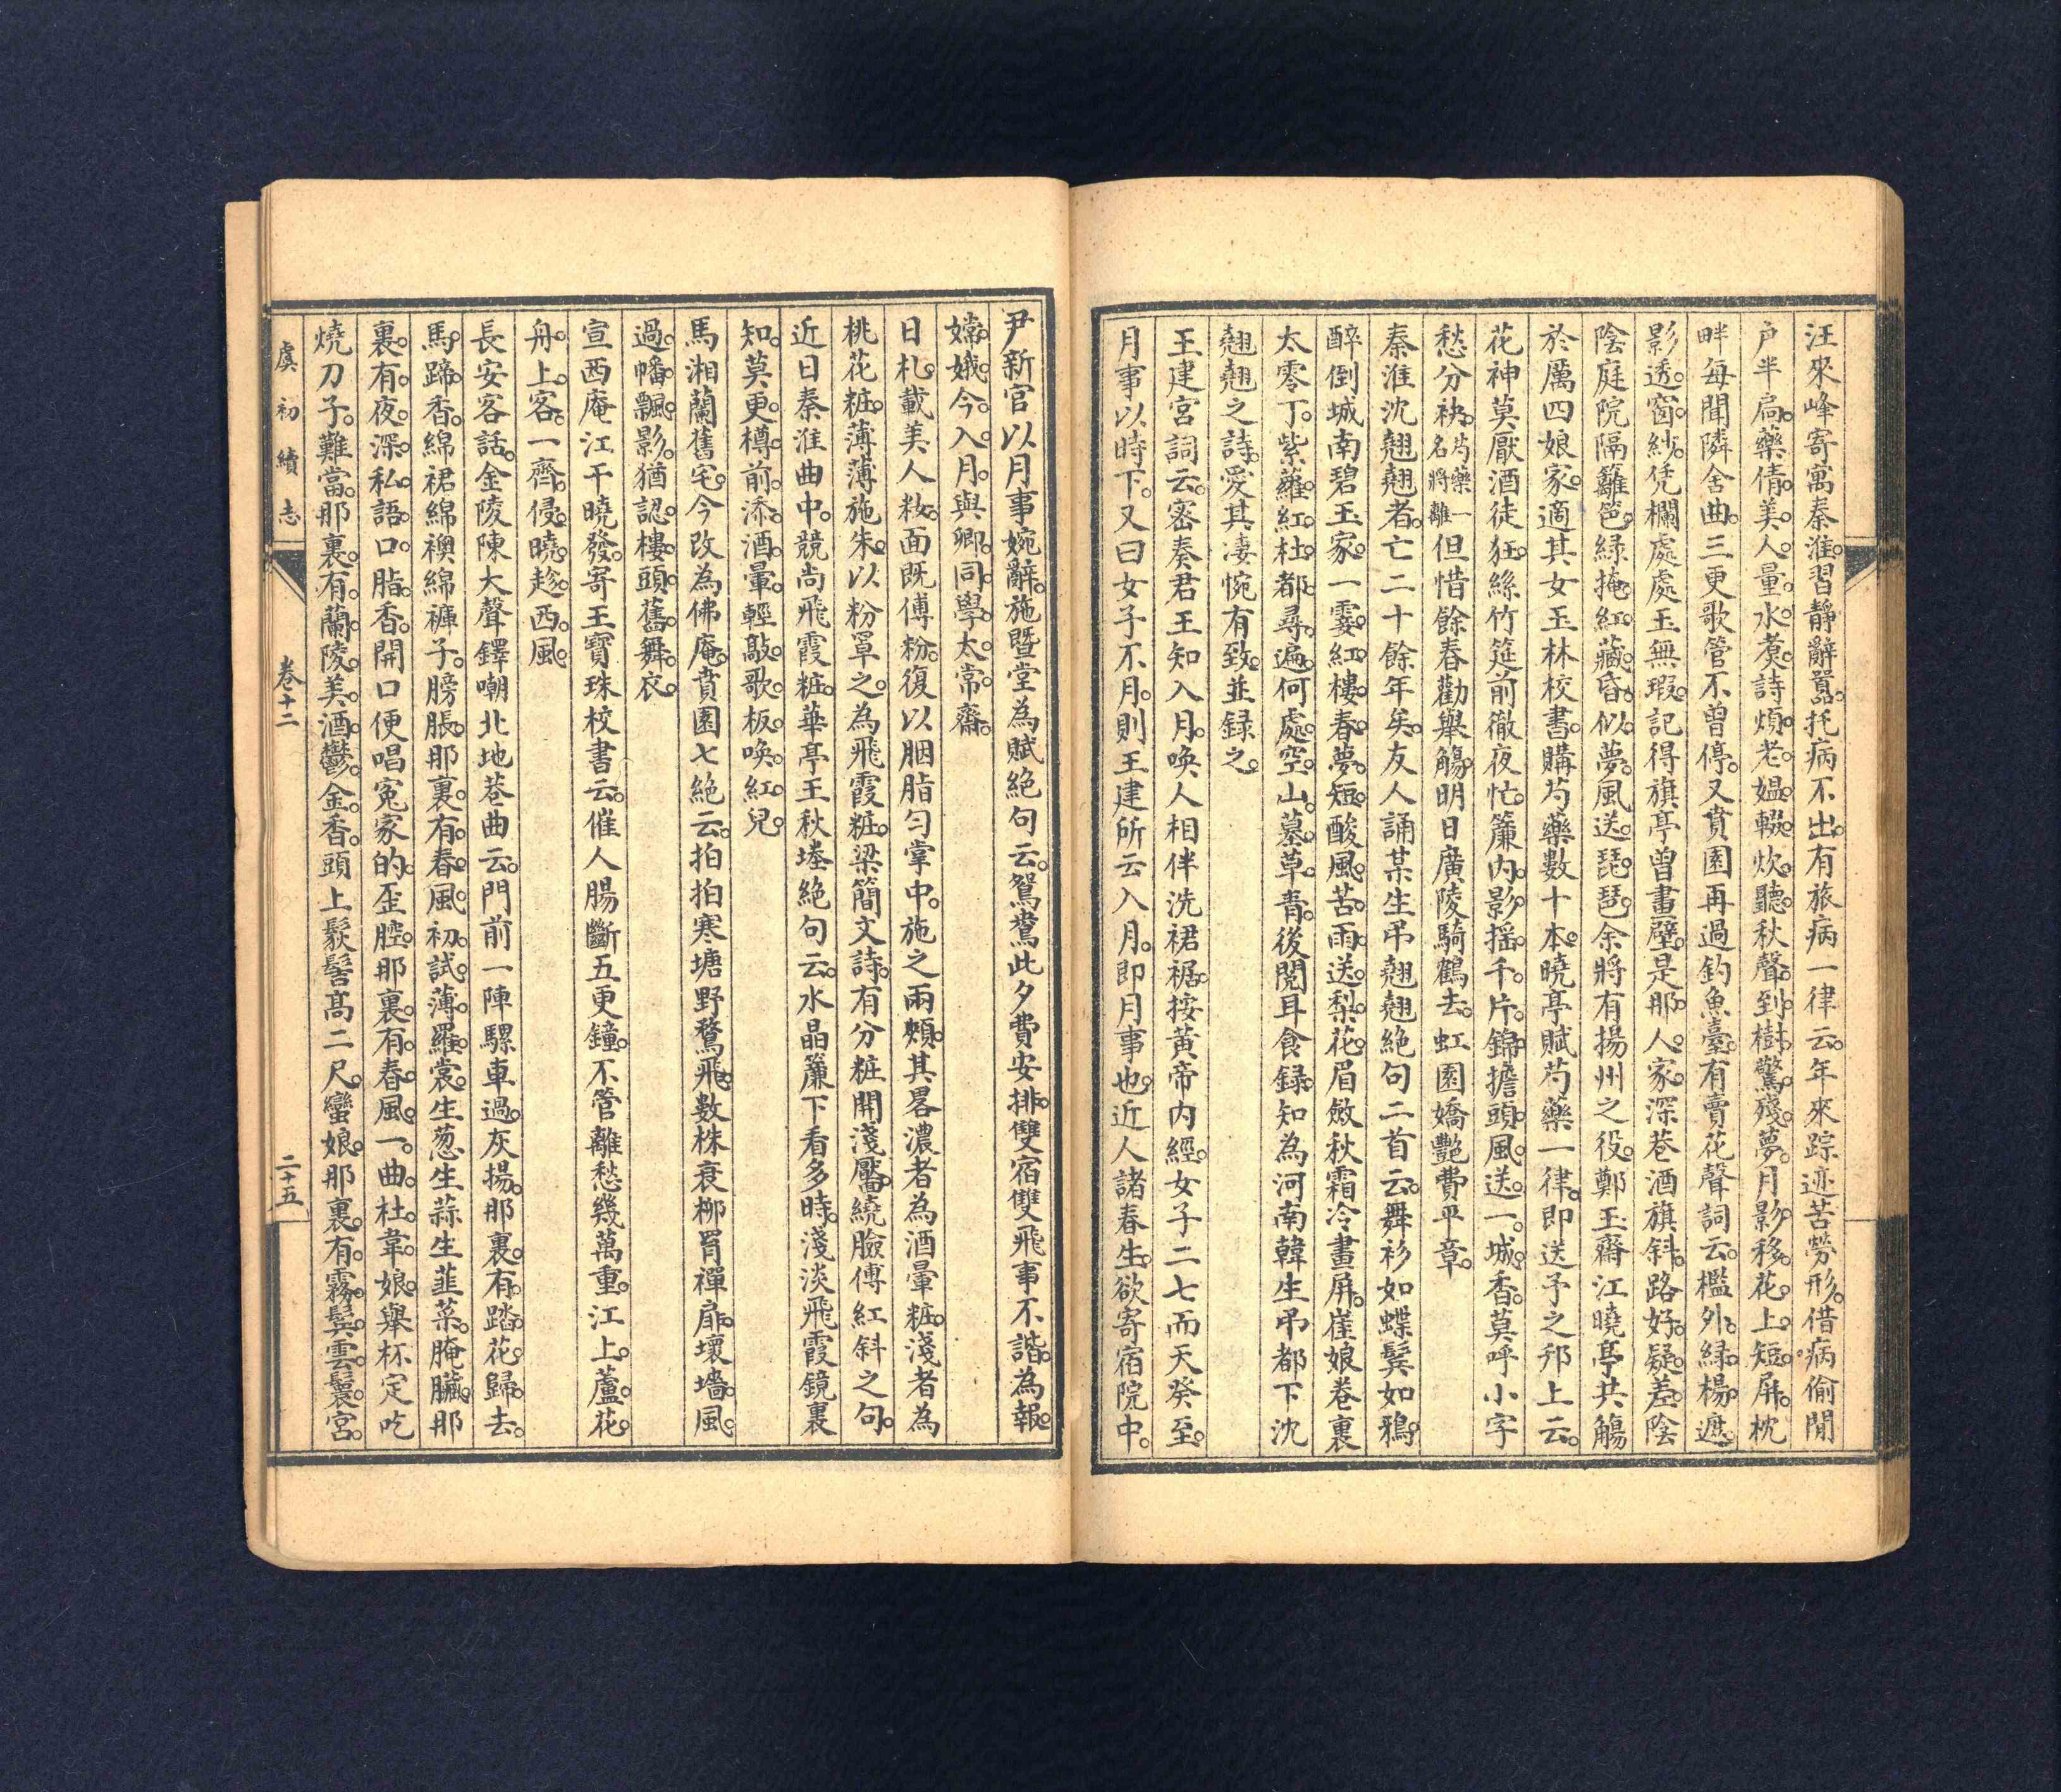 汪來峰寄寓秦淮。習靜辭囂。托病不出。有旅病一律云。年來踪迹苦勞形。借病偷閒
户半扃。藥倩美人量水煑。詩煩老媪輟炊聽。秋聲到樹驚殘夢。月影移花上短屏。枕
畔每聞隣舍曲。三更歌管不曾停。又賁園再過釣魚臺。有賣花聲詞云。檻外綠楊遮。
影透窗紗。凭欄處處玉無瑕。記得旗亭曾畫壁。是那人家。深巷酒旗斜。路好疑差。陰
陰庭院隔籬笆。綠掩紅藏昏似夢。風送琵琶。余將有揚州之役。鄭玉齋江曉亭共觴
於厲四娘家。適其女玉林校書。購芍藥數十本。曉亭賦芍藥一律。即送予之邗上云。
花神莫厭酒徒狂。絲竹筵前徹夜忙。簾内影搖千片錦。擔頭風送一城香。莫呼小字
愁分袂。芍藥一名將離但惜餘春勸舉觴。明日廣陵騎鶴去。虹園嬌艷費平章。
秦淮沈翹翹者。亡二十餘年矣。友人誦某生弔翹翹絶句二首云。舞衫如蝶鬢如鴉。
醉倒城南碧玉家。一霎紅樓春夢短。酸風苦雨送梨花。眉斂秋霜冷畫屏。崔娘卷裏
太零丁。紫蘿紅杜都尋遍。何處空山墓草青。後閱耳食録。知為河南韓生弔都下沈
翹翹之詩。愛其凄惋有致。並録之。
王建宮詞云。密奏君王知入月。喚人相伴洗裙裾。按黃帝内經。女子二七而天癸至。
月事以時下。又曰女子不月。則王建所云入月。即月事也。近人諸春生。欲寄宿院中。
尹新官以月事婉辭。施暨堂為賦絕句云。鴛鴦此夕費安排。雙宿雙飛事不諧。為報
嫦娥今入月。與卿同學太常齋。
日札載美人粧。面既傅粉。復以胭脂匀掌中。施之兩頰。其畧濃者為酒暈粧。淺者為
桃花粧。薄薄施朱。以粉罩之。為飛霞粧。梁簡文詩。有分粧開淺靨。繞臉傅紅斜之句。
近日秦淮曲中。競尚飛霞粧。華亭王秋塍絶句云。水晶簾下看多時。淺淡飛霞鏡裏
知。莫更樽前添酒暈。輕敲歌板喚紅兒。
馬湘蘭舊宅。今改為佛庵。賁園七絶云。拍拍寒塘野鶩飛。數株衰柳罥禪扉。壞墻風
過幡飄影。猶認樓頭舊舞衣。
宣西庵江干曉發。寄王寶珠校書云。催人腸斷五更鐘。不管離愁幾萬重。江上蘆花
舟上客。一齊侵曉趁西風。
長安客話。金陵陳大聲鐸嘲北地巷曲云。門前一陣騾車過。灰揚。那裏有踏花歸去
馬蹄香。綿裙綿襖綿褲子。膀脹。那裏有春風初試薄羅裳。生葱生蒜生韮菜。腌臟。那
裏有夜深私語口脂香。開口便唱冤家的。歪腔。那裏有春風一曲杜韋娘。舉杯定吃
燒刀子。難當。那裏有蘭陵美酒鬱金香。頭上鬏髻高二尺。蠻娘。那裏有霧鬢雲鬟宮
虞初續志
卷十二
二十五